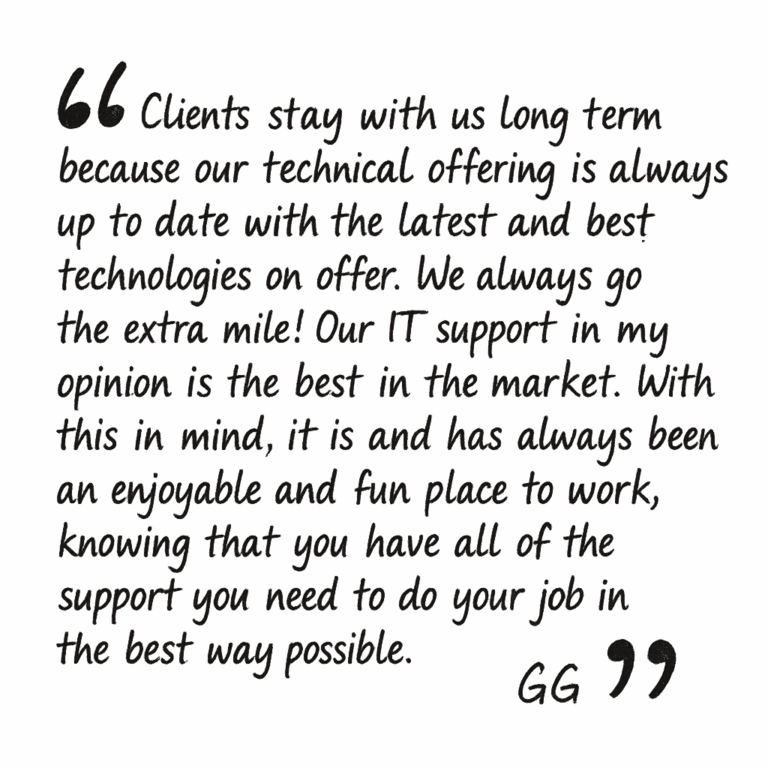 “Clients stay with us long term
because our technical offering is always
up to date with the latest and best
technologies on offer. We always go
the extra mile! Our IT support in my
opinion is the best in the market. With
this in mind, it is and has always been
an enjoyable and fun place to work,
knowing that you have all of the
support you need to do your job in
the best way possible.
GG”